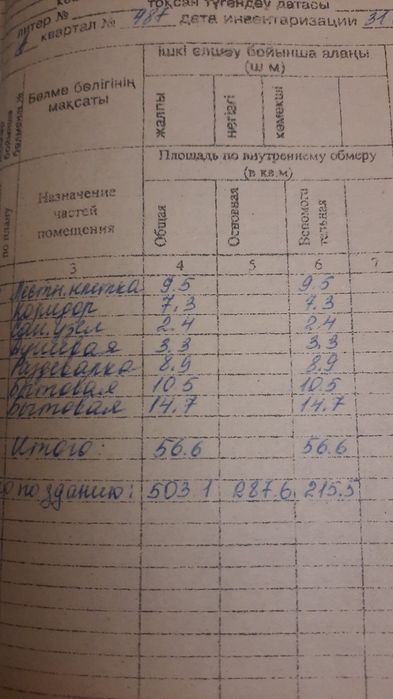 тоқсан түгендеу датасы
литер № квартал № 487 дата инвентаризации 31
Бөлме бөлігінің мақсаты
ішкі өлшеу бойынша алаңы
(ш м)
жалпы
негізгі
көмекші
Площадь по внутреннему обмеру
(в кв.м)
по плану
Назначение частей помещения
Общая
Основная
Вспомога тельная
3 4 5 6 7
Лестн.клетка 9.5 9.5
Коридор 7.3 7.3
Сан.узел 2.4 2.4
Душевая 3.3 3.3
Раздевалка 8.9 8.9
Бытовая 10.5 10.5
Бытовая 14.7 14.7
Итого: 56.6 56.6
о по зданию: 503.1 287.6 215.5